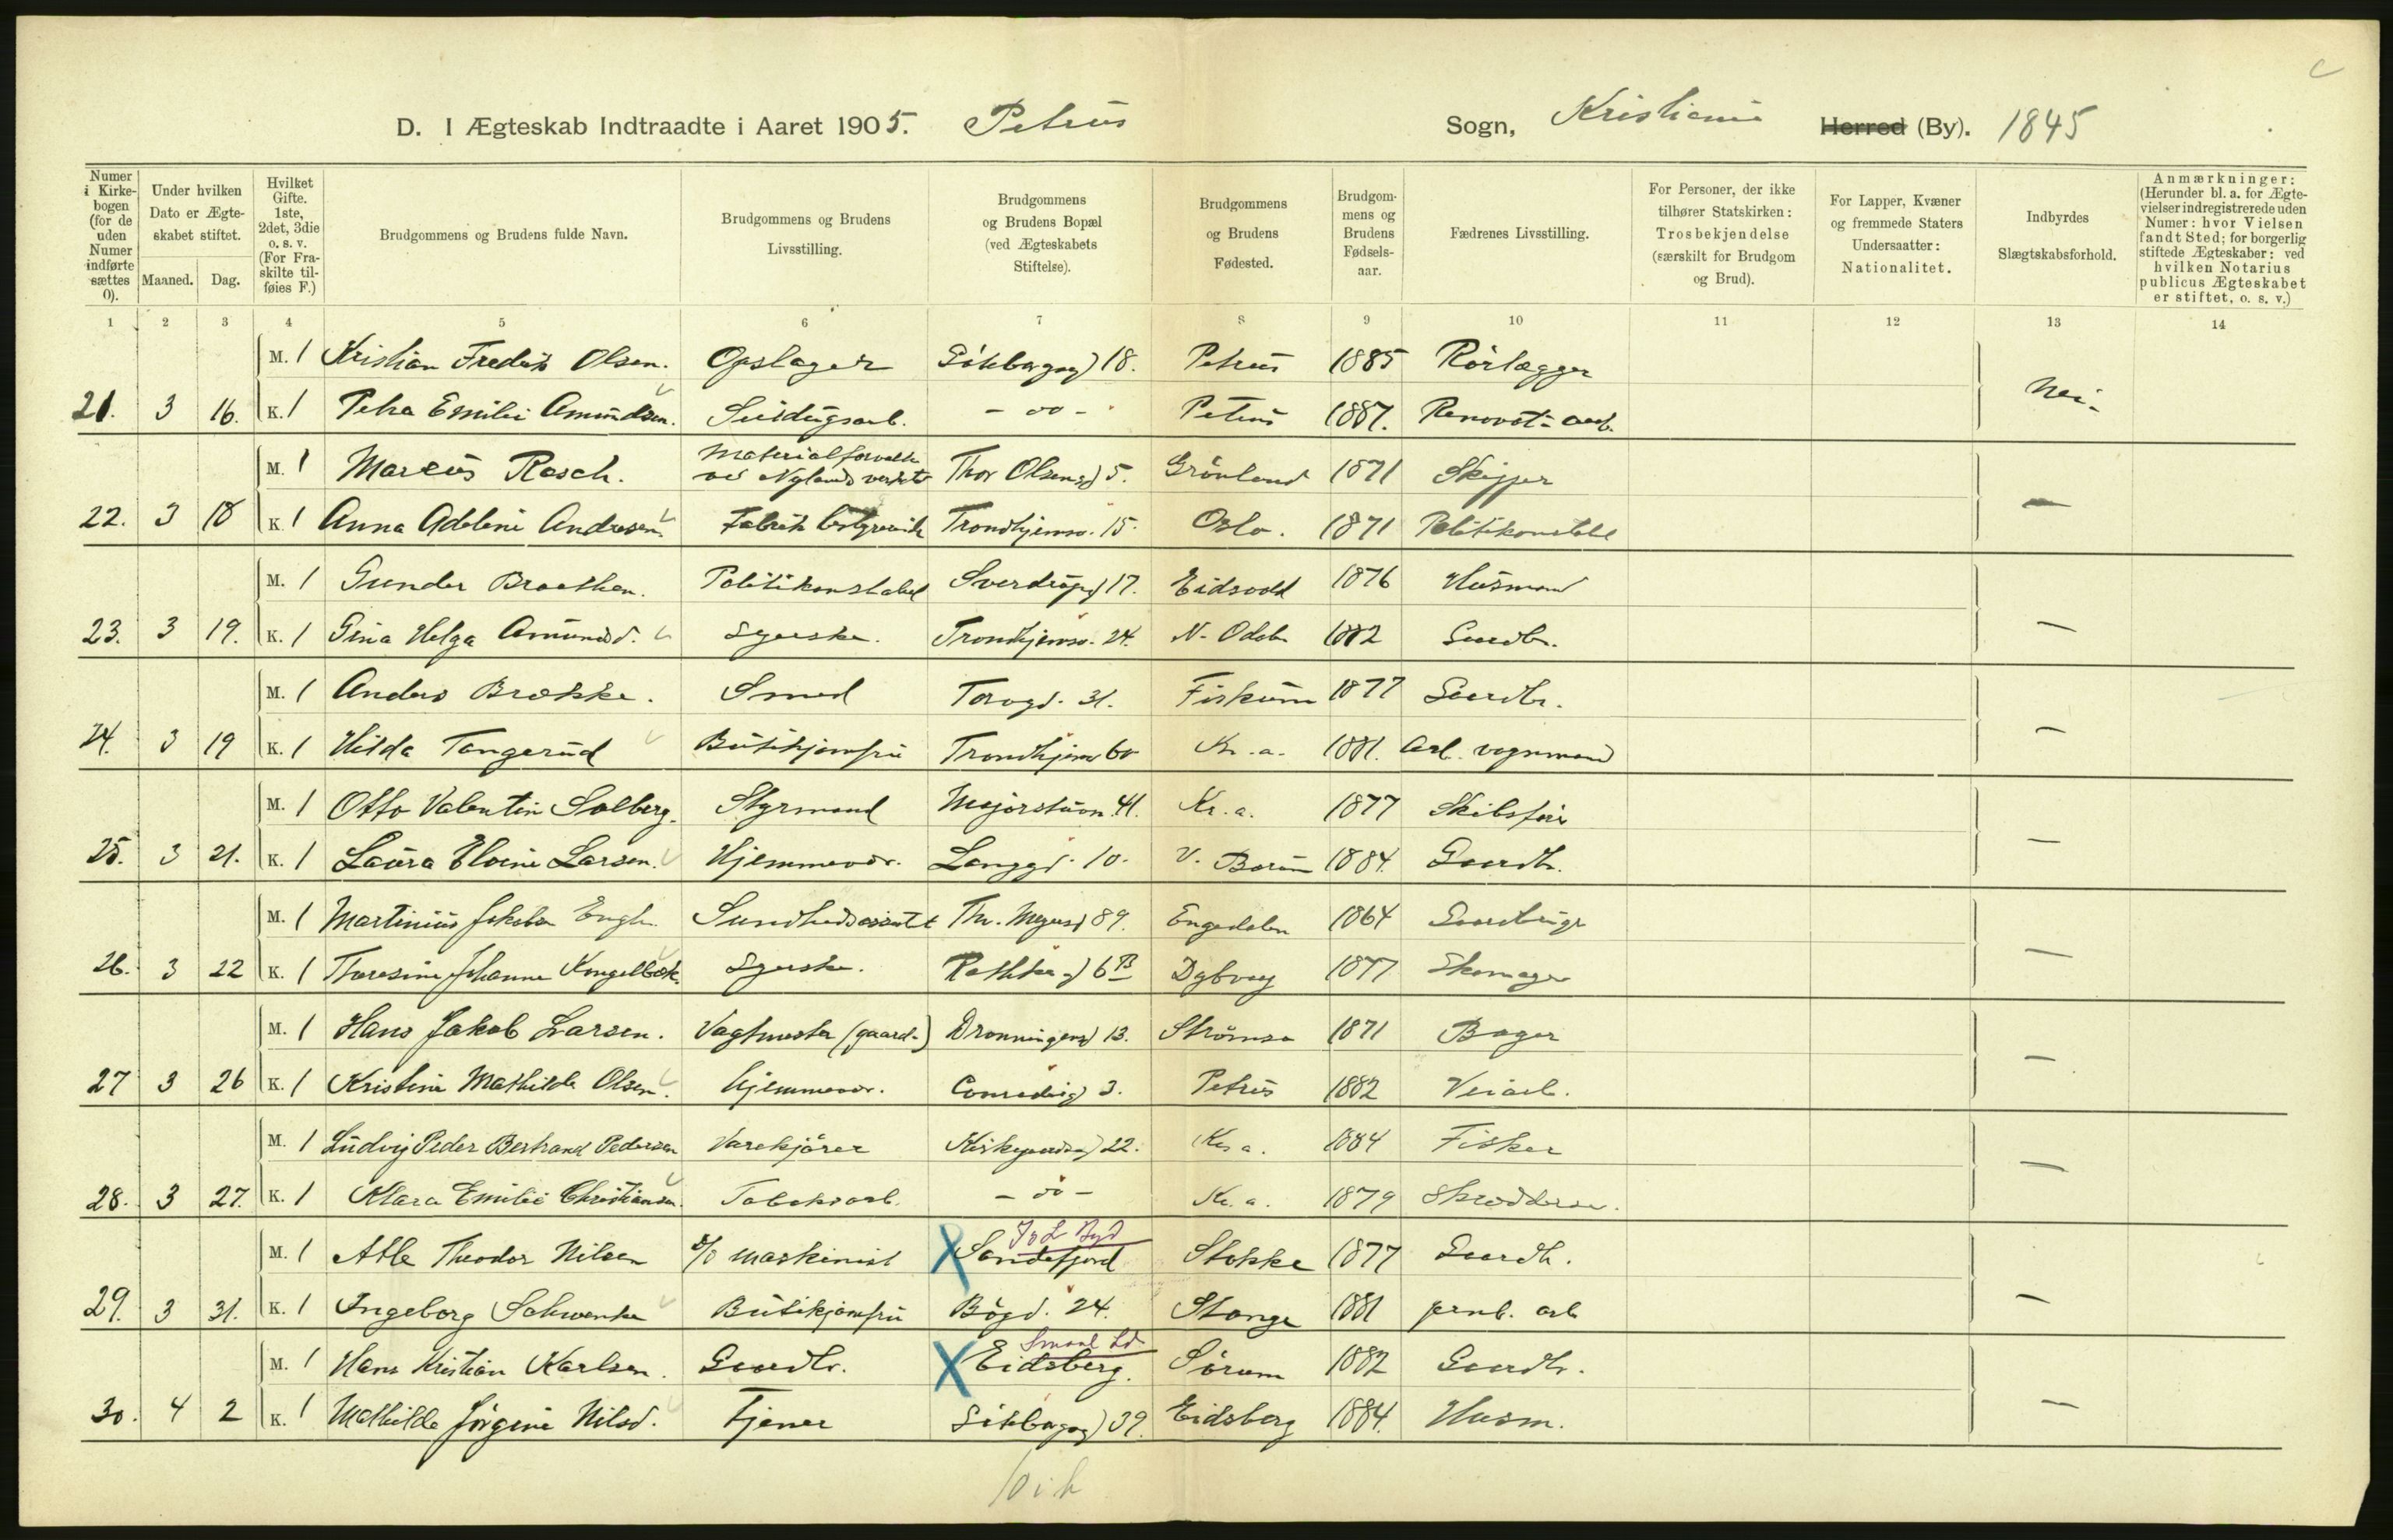 D. I Ægteskab Indtraadte i Aaret 1905. Petrus Sogn, Kristiania Herred (By). 1845
Numer i Kirkebogen (for de uden Numer indførte sættes 0).
Under hvilken Dato er Ægteskabet stiftet.
Maaned. Dag.
Hvilket Gifte. 1ste, 2det, 3die o. s. v. (For Fraskilte tilføies F.)
Brudgommens og Brudens fulde Navn.
Brudgommens og Brudens Livsstilling.
Brudgommens og Brudens Bopæl (ved Ægteskabets Stiftelse).
Brudgommens og Brudens Fødested.
Brudgommens og Brudens Fødselsaar.
Fædrenes Livsstilling.
For Personer, der ikke tilhører Statskirken: Trosbekjendelse (særskilt for Brudgom og Brud).
For Lapper, Kvæner og fremmede Staters Undersaatter: Nationalitet.
Indbyrdes Slægtskabsforhold.
Anmærkninger: (Herunder bl. a. for Ægtevielser indregistrerede uden Numer: hvor Vielsen fandt Sted; for borgerlig stiftede Ægteskaber: ved hvilken Notarius publicus Ægteskabet er stiftet, o. s. v.)
1 2 3 4 5 6 7 8 9 10 11 12 13 14
M. 1 Kristian Fredrik Olsen. Opslager 18. Petrus 1885 Rørlægger
21. 3 16. K. 1 Petra Emilie Amundsen. - oo - Petrus 1887. Renovat. arb. Nei.
M. 1 Marcus Rasch. Materialforvalter ved Nylands verksted Thor Olsensgd 5. Grønland 1871 Skipper
22. 3 18 K. 1 Anna Adeline Andresen Trondhjemsv. 15. Oslo. 1871 Politikonstbl —
M. 1 Gunder Braathen. Politikonstabel Sverdrupsgd 17. Eidsvold 1876 Husmand
23. 3 19. K. 1 Gina Helga Amundsd. Syerske. Trondhjemsv. 24. N. Odal 1882 Gaardbr. —
M. 1 Anders Brække. Smed Torvgd. 31. Fiskum 1877 Gaardbr.
24. 3 19 K. 1 Hilda Tangerud Butikjomfru Trondhjemsv 60 Kr. a. 1881. Arb. vognmand —
M. 1 Otto Valentin Solberg. Styrmand Majorstuvn. 41. Kr. a. 1877 Skibsfører
25. 3 21. K. 1 Laura Elvine Larsen. Hjemmevær. Langgd. 10. V. Bærum 1884. Gaardbr. —
M. 1 Martinius Jakobsen Engh. Sundhedsassistent Th. Meyersgd 89. Engedalen 1864 Gaardbruger
26. 3 22 K. 1 Theresine Johanne Kongelbæk. Syerske. 6 B Dybvaag 1877 Skomager —
M. 1 Hans Jakob Larsen. Vagtmester (gaard-) Dronningensgd 13. Strømsø 1871 Bager
27 3 26 K. 1 Kristine Mathilde Olsen. Hjemmevær. Conradisgd 3. Petrus 1882 Veiarb. —
M. 1 Ludvig Peder Bertrand Pedersen Varekjører Kirkegaardsgd 22. Kr. a. 1884 Fisker
28. 3 27. K. 1 Klara Emilie Christiansen. Tobaksarb. - oo - Kr. a. 1879 Skræddersv. —
M. 1 Atle Theodor Nilsen d/s maskinist X Sandefjord Stokke 1877 Gaardbr.
29. 3 31. K. 1 Ingeborg Schwenke Butikjomfru Bøgd. 24. Stange 1881 jernb. arb —
M. 1 Hans Kristian Karlsen. Gaardbr. X Eidsberg. Smaal. Sørum 1882 Gaardbr.
30. 4 2 K. 1 Mathilde Jørgine Nilsd. Tjener 39. Eidsberg 1884. Husm. —